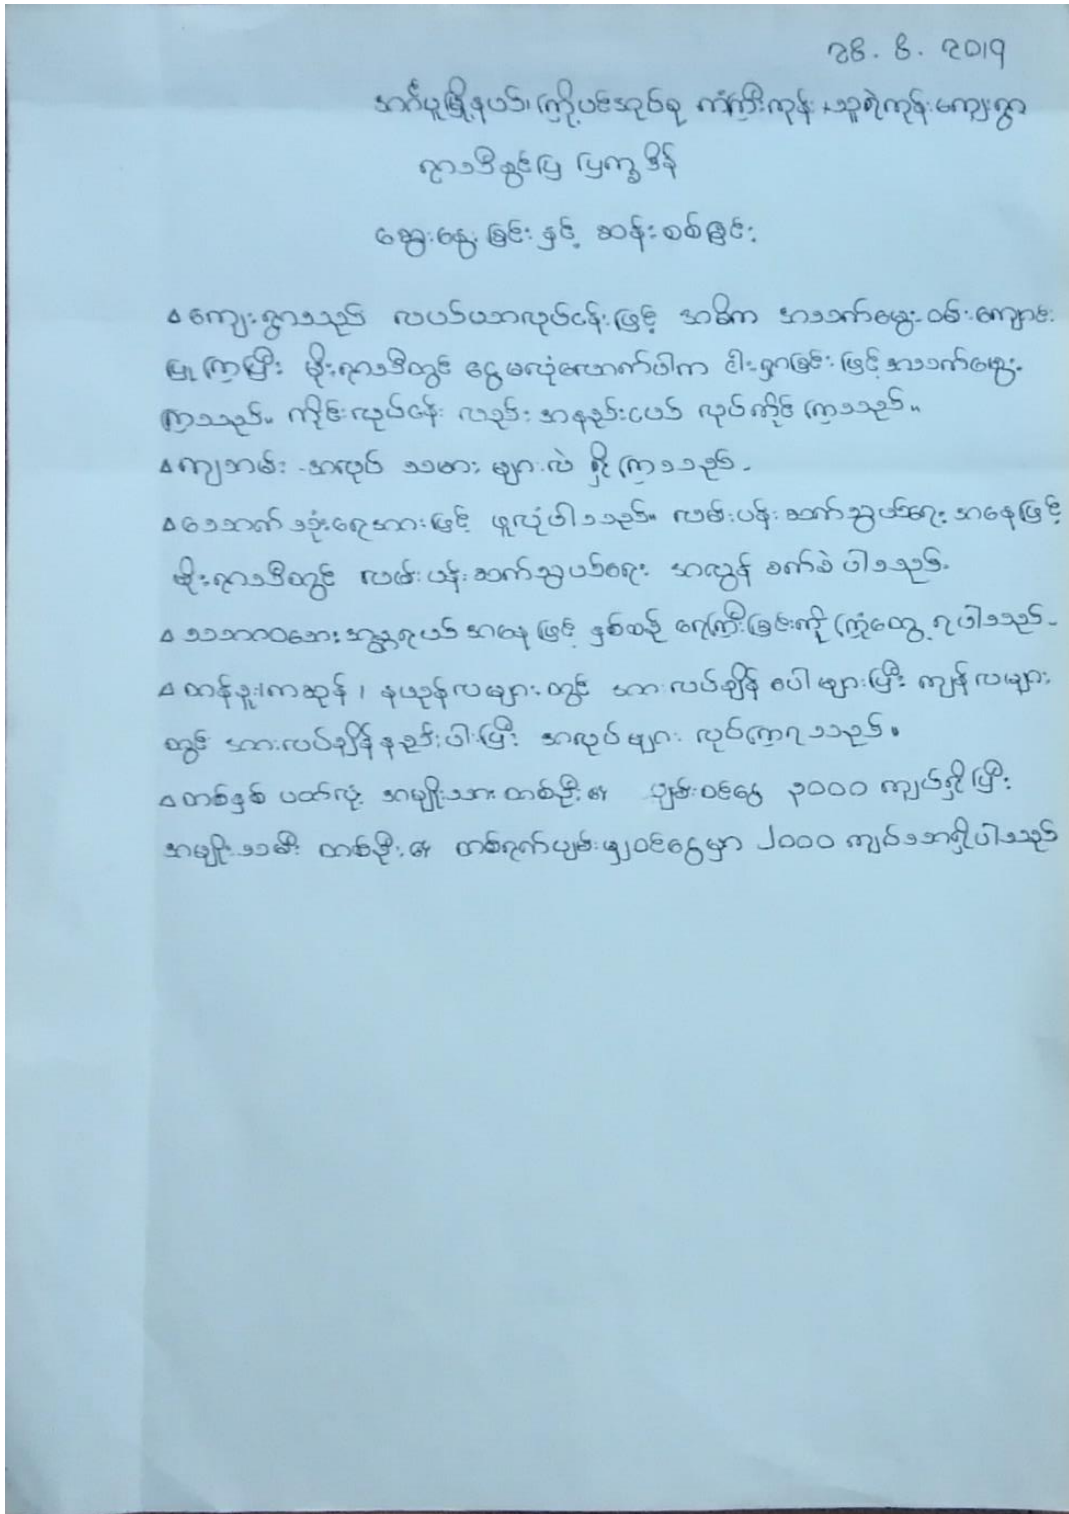 28. 8. 2019
အင်္ဂပူမြို့နယ်၊ ကြို့ပင်အုပ်စု ကံကြီးကုန်း သူရဲကုန်းကျေးရွာ
ရာသီခွင်ပြ ပြက္ခဒိန်
ဆွေးနွေးခြင်းနှင့် ဆန်းစစ်ခြင်း
∆ ကျေးရွာသည် လယ်ယာလုပ်ငန်းဖြင့် အဓိက အသက်မွေးဝမ်းကျောင်း
ပြုကြပြီး မိုးရာသီတွင် ငွေမလုံလောက်ပါက ငါးရှာခြင်းဖြင့် အသက်မွေး
ကြသည်။ ကိုင်းလုပ်ငန်း လည်း အနည်းငယ် လုပ်ကိုင်ကြသည်။
∆ ကျဘမ်း အလုပ် သမား များလဲ ရှိကြသည်။
∆ သောက်သုံးရေအားဖြင့် ဖူလုံပါသည်။ လမ်းပန်းဆက်သွယ်ရေး အနေဖြင့်
မိုးရာသီတွင် လမ်းပန်းဆက်သွယ်ရေး အလွန် ခက်ခဲပါသည်။
∆ သဘာဝဘေးအန္တရာယ် အနေဖြင့် နှစ်စဉ် ရေကြီးခြင်းကို ကြုံတွေ့ရပါသည်။
∆ တန်ခူး၊ ကဆုန် ၊ နယုန်လများတွင် အားလပ်ချိန် ပေါများပြီး ကျန်လများ
တွင် အားလပ်ချိန်နည်းပါးပြီး အလုပ်များ လုပ်ကြရသည်။
∆ တစ်နှစ် ပတ်လုံး အမျိုးသား တစ်ဦး၏ ပျမ်းဝင်ငွေ ၃၀၀၀ ကျပ်ရှိပြီး
အမျိုးသမီး တစ်ဦး၏ တစ်ရက်ပျမ်းမျှဝင်ငွေမှာ ၂၀၀၀ ကျပ်သာရှိပါသည်